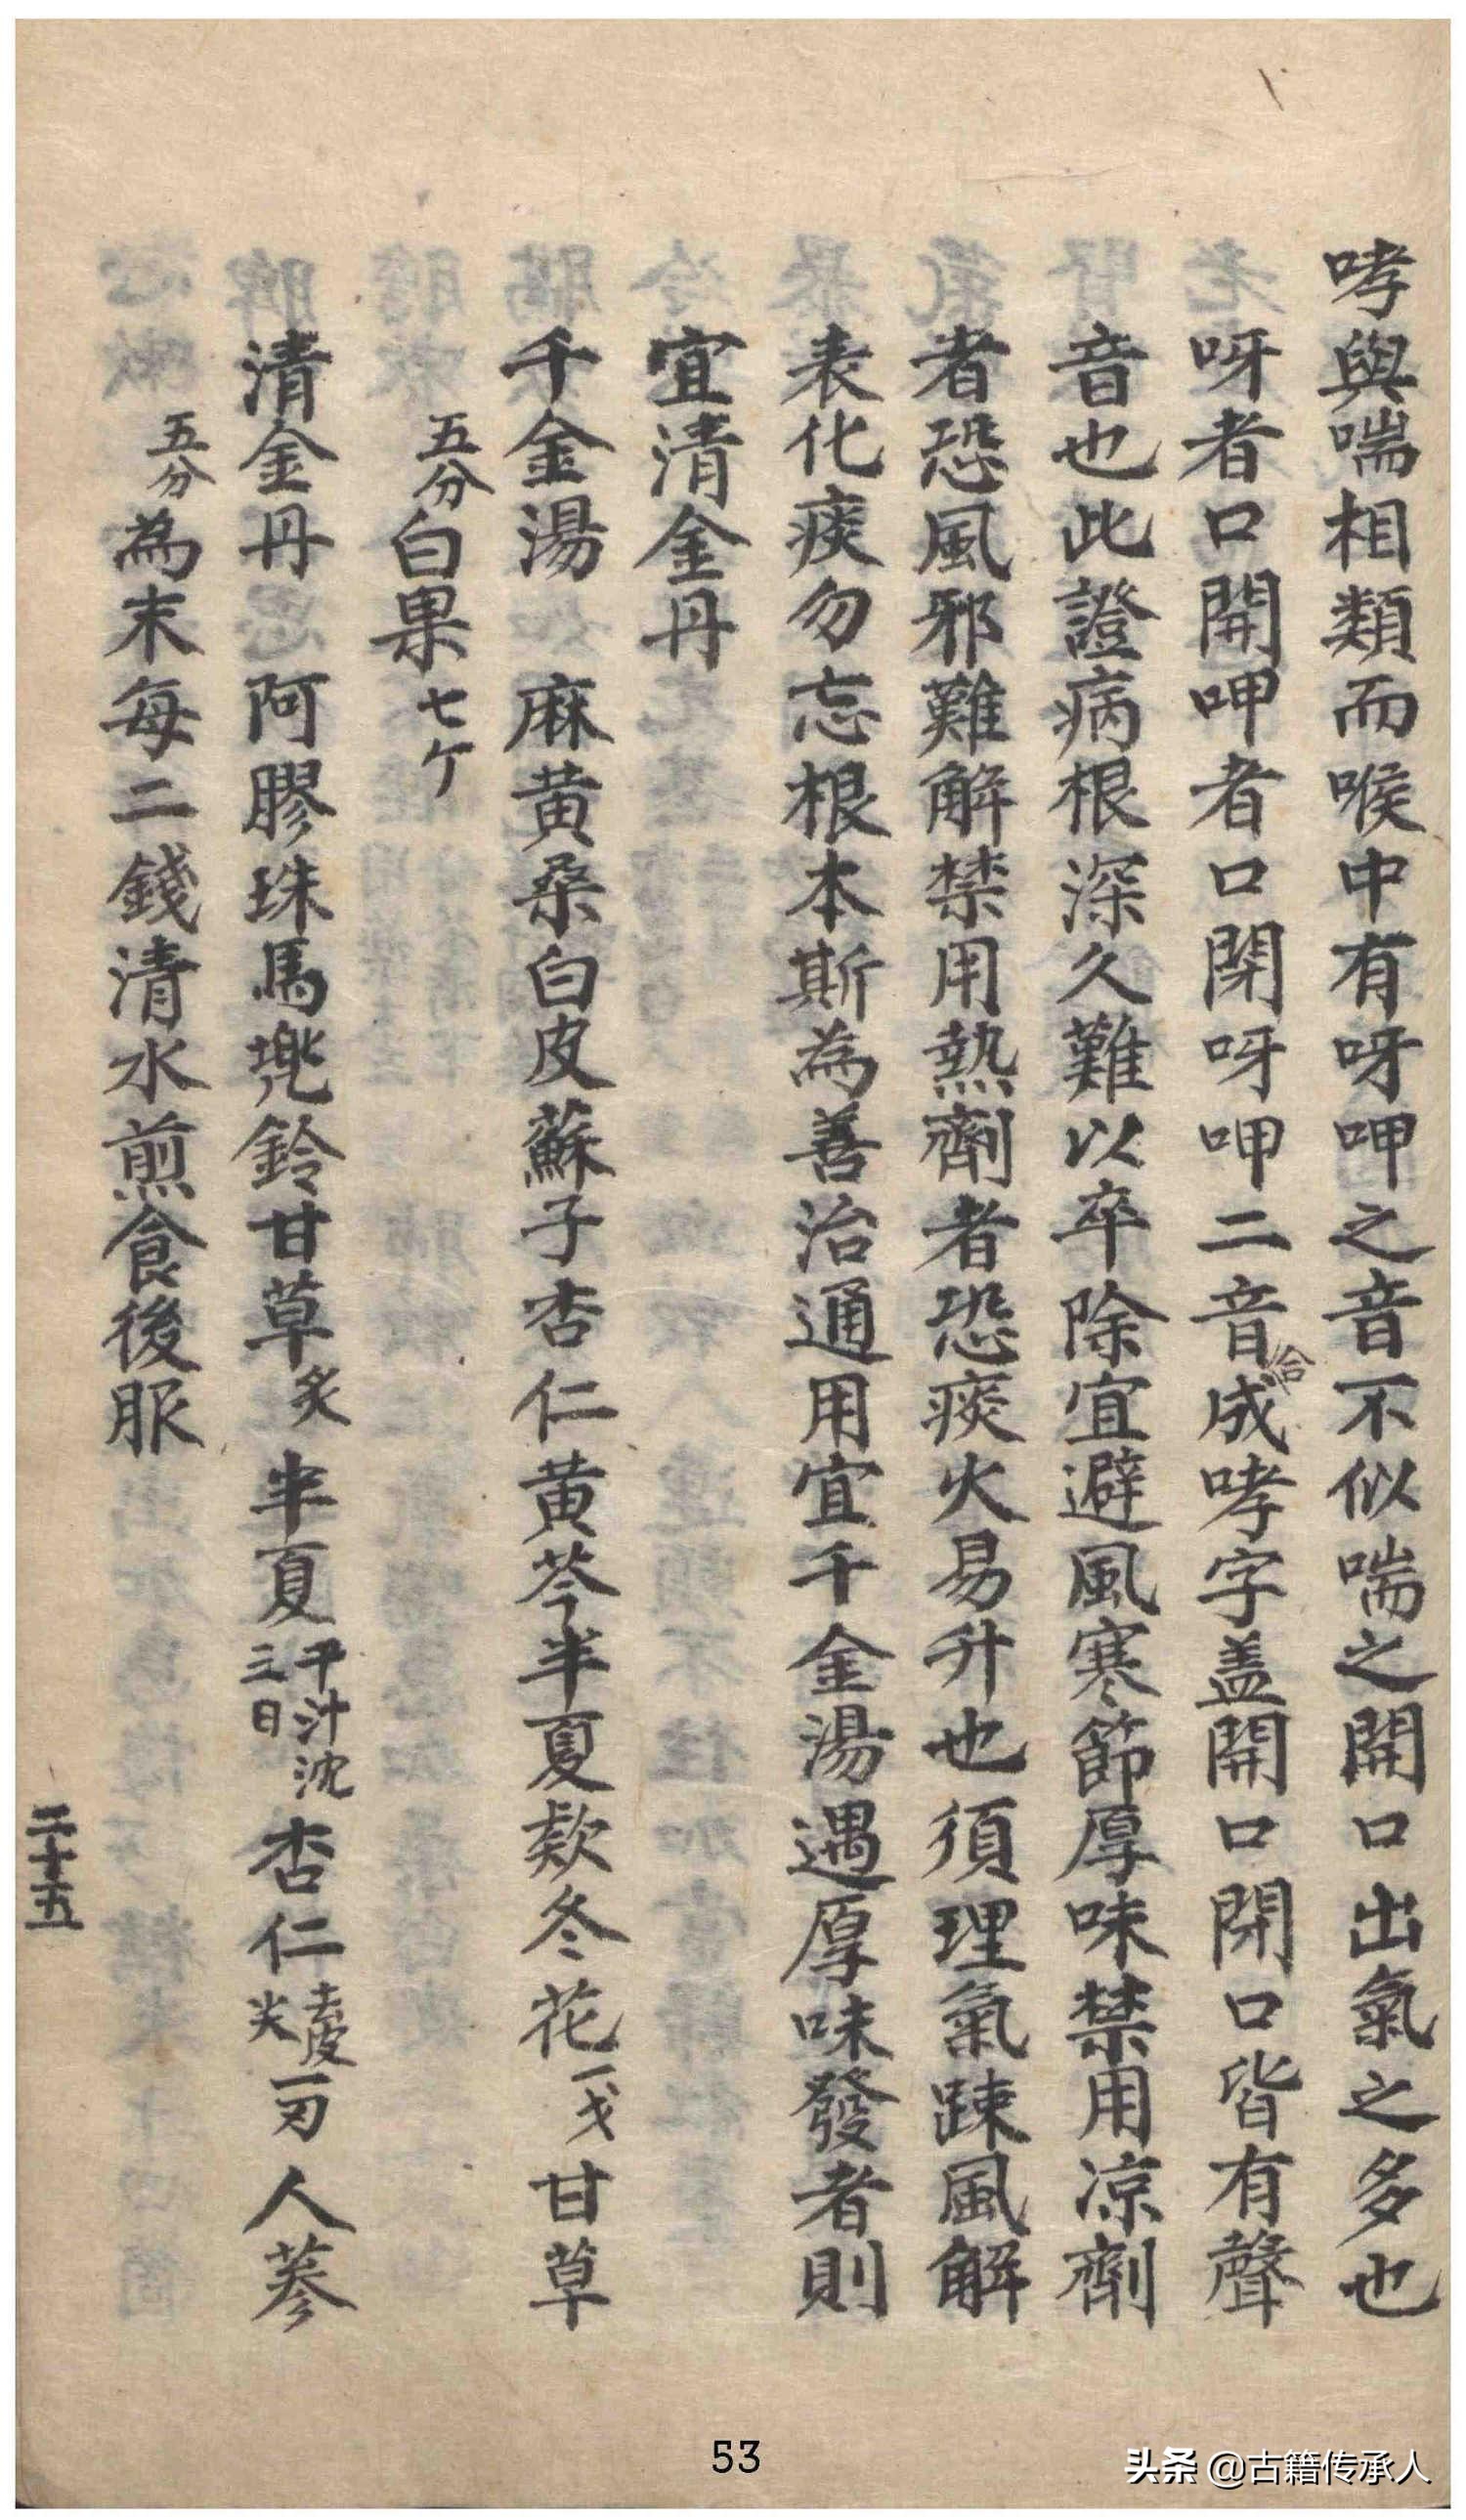 哮與喘相類而喉中有呀呷之音不似喘之開口出氣之多也
呀者口開呷者口閉呀呷二音合成哮字盖開口閉口皆有聲
音也此證病根深久難以卒除宜避風寒節厚味禁用凉劑
者恐風邪難解禁用熱劑者恐痰火易升也須理氣踈風解
表化痰勿忘根本斯為善治通用宜千金湯遇厚味發者則
宜清金丹
千金湯 麻黄桑白皮蘇子杏仁黄芩半夏款冬花一戋甘草
五分白果七个
清金丹 阿膠珠馬兠鈴甘草炙半夏干汁沈三日杏仁去皮尖一刃人蔘
五分為末每二錢清水煎食後服
二十五
53
头条 @古籍传承人